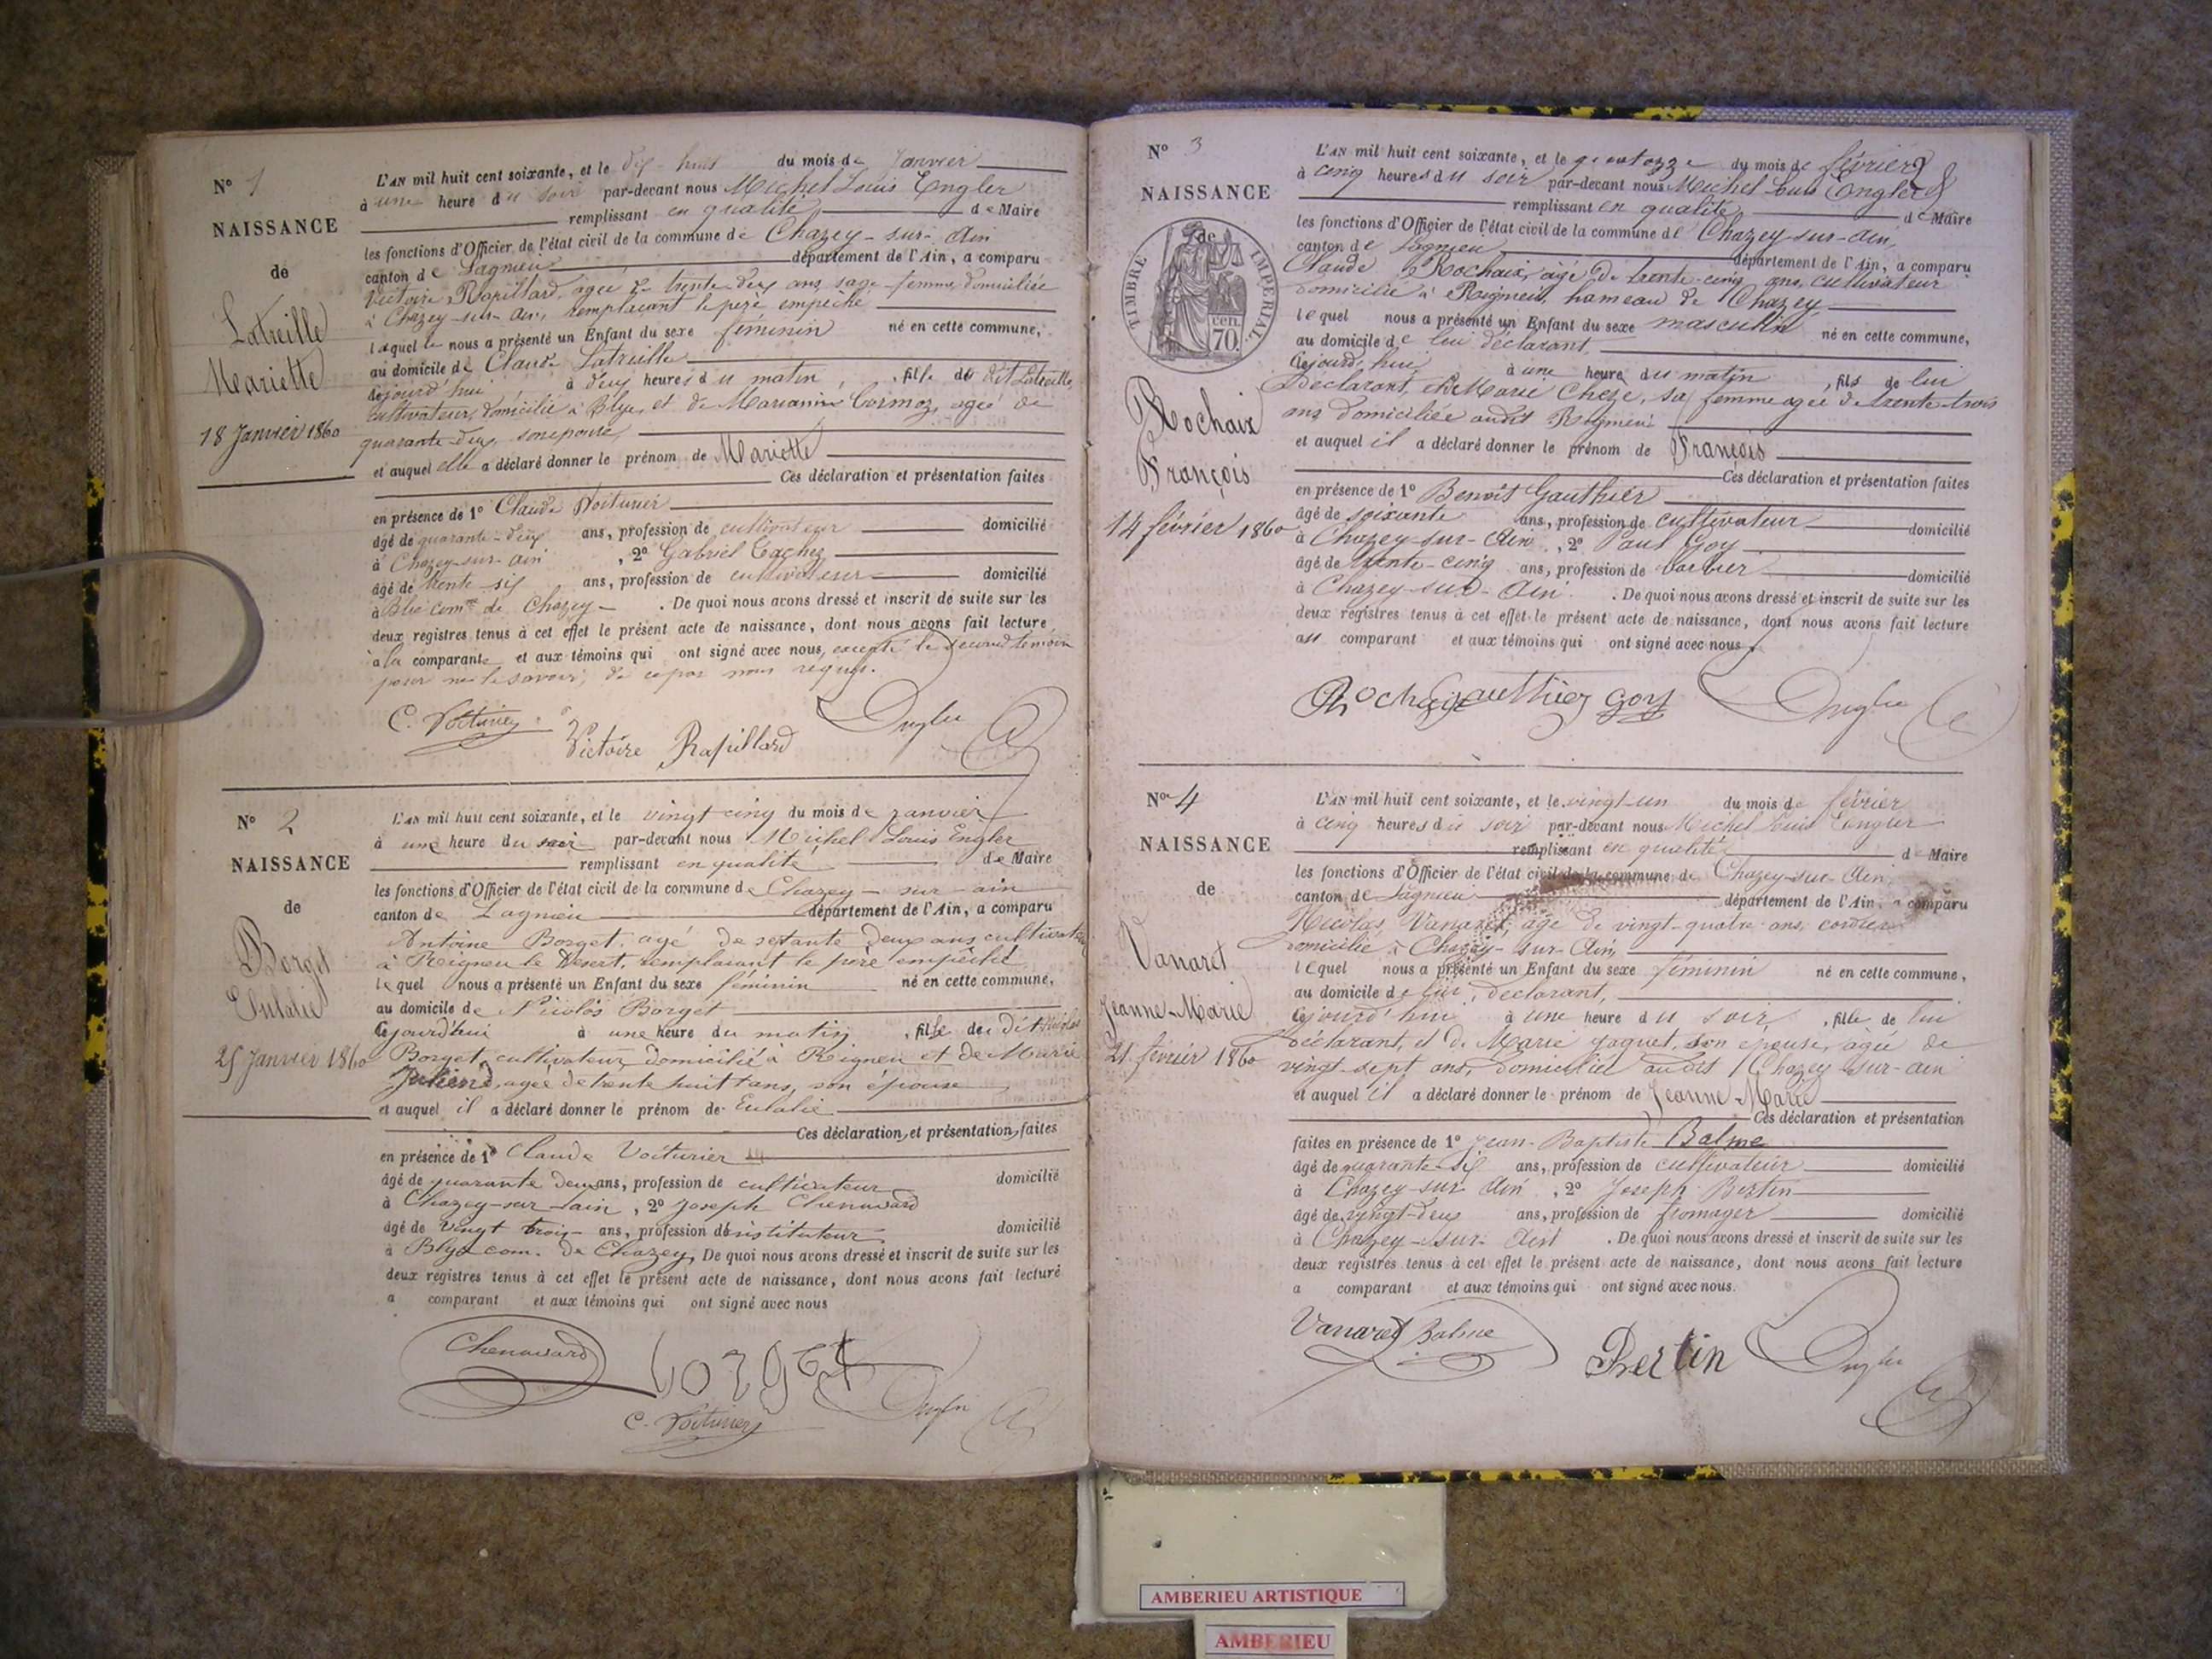 N° 1
NAISSANCE
de
Latreille
Mariette
18 Janvier 1860
L'AN mil huit cent soixante, et le dix-huit du mois de Janvier
à une heure du soir par-devant nous Michel Louis Engler
remplissant en qualité de Maire
les fonctions d'Officier de l'état civil de la commune de Chazey-sur-Ain
canton de Lagnieu département de l'Ain, a comparu
Victoire Rapillard, agée de trente-deux ans, sage-femme, domiciliée
à Chazey-sur-Ain, remplaçant le père empêché
laquelle nous a présenté un Enfant du sexe féminin né en cette commune,
au domicile de Claude Latreille
cejourd'hui à deux heures du matin, fille de dit Latreille,
cultivateur, domicilié à Blye, et de Marianne Cormoz, agée de
quarante-deux, son épouse,
et auquel elle a déclaré donner le prénom de Mariette
Ces déclaration et présentation faites
en présence de 1° Claude Voiturier
âgé de quarante-deux ans, profession de cultivateur domicilié
à Chazey-sur-Ain, 2° Gabriel Cachez
âgé de trente-six ans, profession de cultivateur domicilié
à Blie com.ne de Chazey. De quoi nous avons dressé et inscrit de suite sur les
deux registres tenus à cet effet le présent acte de naissance, dont nous avons fait lecture
à la comparante et aux témoins qui ont signé avec nous, excepté le second témoin
pour ne le savoir, de ce par nous requis.
C. Voiturier Victoire Rapillard Engler
N° 2
NAISSANCE
de
Borget
Eulalie
25 Janvier 1860
L'AN mil huit cent soixante, et le vingt cinq du mois de janvier
à une heure du soir par-devant nous Michel Louis Engler
remplissant en qualité de Maire
les fonctions d'Officier de l'état civil de la commune de Chazey-sur-ain
canton de Lagnieu département de l'Ain, a comparu
Antoine Borget, agé de septante deux ans, cultivateur
à Rigneu le Desert, remplacant le père empêché
lequel nous a présenté un Enfant du sexe féminin né en cette commune,
au domicile de Nicolas Borget
cejourd'hui à une heure du matin, fille de dit Nicolas
Borget, cultivateur, domicilié à Rigneu et de Marie
Juliend, agée de trente huit ans, son épouse
et auquel il a déclaré donner le prénom de Eulalie
Ces déclaration et présentation faites
en présence de 1° Claude Voiturier
âgé de quarante deux ans, profession de cultivateur domicilié
à Chazey-sur-lain, 2° Joseph Chenavard
âgé de vingt trois ans, profession d'instituteur domicilié
à Blye com. de Chazey, De quoi nous avons dressé et inscrit de suite sur les
deux registres tenus à cet effet le présent acte de naissance, dont nous avons fait lecture
a comparant et aux témoins qui ont signé avec nous
Chenavard borget Engler
C. Voiturier
N° 3
NAISSANCE
de
TIMBRE IMPÉRIAL
cen. 70.
Rochaix
François
14 février 1860
L'AN mil huit cent soixante, et le quatorze du mois de février
à cinq heures du soir par-devant nous Michel Louis Engler
remplissant en qualité de Maire
les fonctions d'Officier de l'état civil de la commune de Chazey-sur-Ain,
canton de Lagnieu département de l'Ain, a comparu
Claude Rochaix, agé de trente-cinq ans, cultivateur
domicilié à Rigneu, hameau de Chazey
lequel nous a présenté un Enfant du sexe masculin né en cette commune,
au domicile de lui déclarant,
cejourd'hui à une heure du matin, fils de lui
déclarant, et de Marie Cheze, sa femme agée de trente-trois
ans domiciliée audit Rigneu
et auquel il a déclaré donner le prénom de François
Ces déclaration et présentation faites
en présence de 1° Benoît Gauthier
âgé de soixante ans, profession de cultivateur domicilié
à Chazey-sur-Ain, 2° Paul Goy
âgé de trente-cinq ans, profession de barbier domicilié
à Chazey-sur-Ain. De quoi nous avons dressé et inscrit de suite sur les
deux registres tenus à cet effet le présent acte de naissance, dont nous avons fait lecture
au comparant et aux témoins qui ont signé avec nous.
Rochaix Gauthier goy Engler
N° 4
NAISSANCE
de
Vanaret
Jeanne-Marie
21 février 1860
L'AN mil huit cent soixante, et le vingt-un du mois de février
à cinq heures du soir par-devant nous Michel Louis Engler
remplissant en qualité de Maire
les fonctions d'Officier de l'état civil de la commune de Chazey-sur-Ain,
canton de Lagnieu département de l'Ain, a comparu
Nicolas Vanaret, agé de vingt-quatre ans, cordier
domicilié à Chazey-sur-Ain,
lequel nous a présenté un Enfant du sexe féminin né en cette commune,
au domicile de lui, déclarant,
cejourd'hui à une heure du soir, fille de lui
déclarant, et de Marie Jaquet, son épouse, agée de
vingt-sept ans, domiciliés audit Chazey-sur-ain
et auquel il a déclaré donner le prénom de Jeanne-Marie
Ces déclaration et présentation
faites en présence de 1° Jean-Baptiste Balme
âgé de quarante-six ans, profession de cultivateur domicilié
à Chazey-sur-Ain, 2° Joseph Bertin
âgé de vingt-deux ans, profession de fromager domicilié
à Chazey-sur-Ain. De quoi nous avons dressé et inscrit de suite sur les
deux registres tenus à cet effet le présent acte de naissance, dont nous avons fait lecture
a comparant et aux témoins qui ont signé avec nous.
Vanaret Balme Bertin Engler
AMBERIEU ARTISTIQUE
AMBERIEU